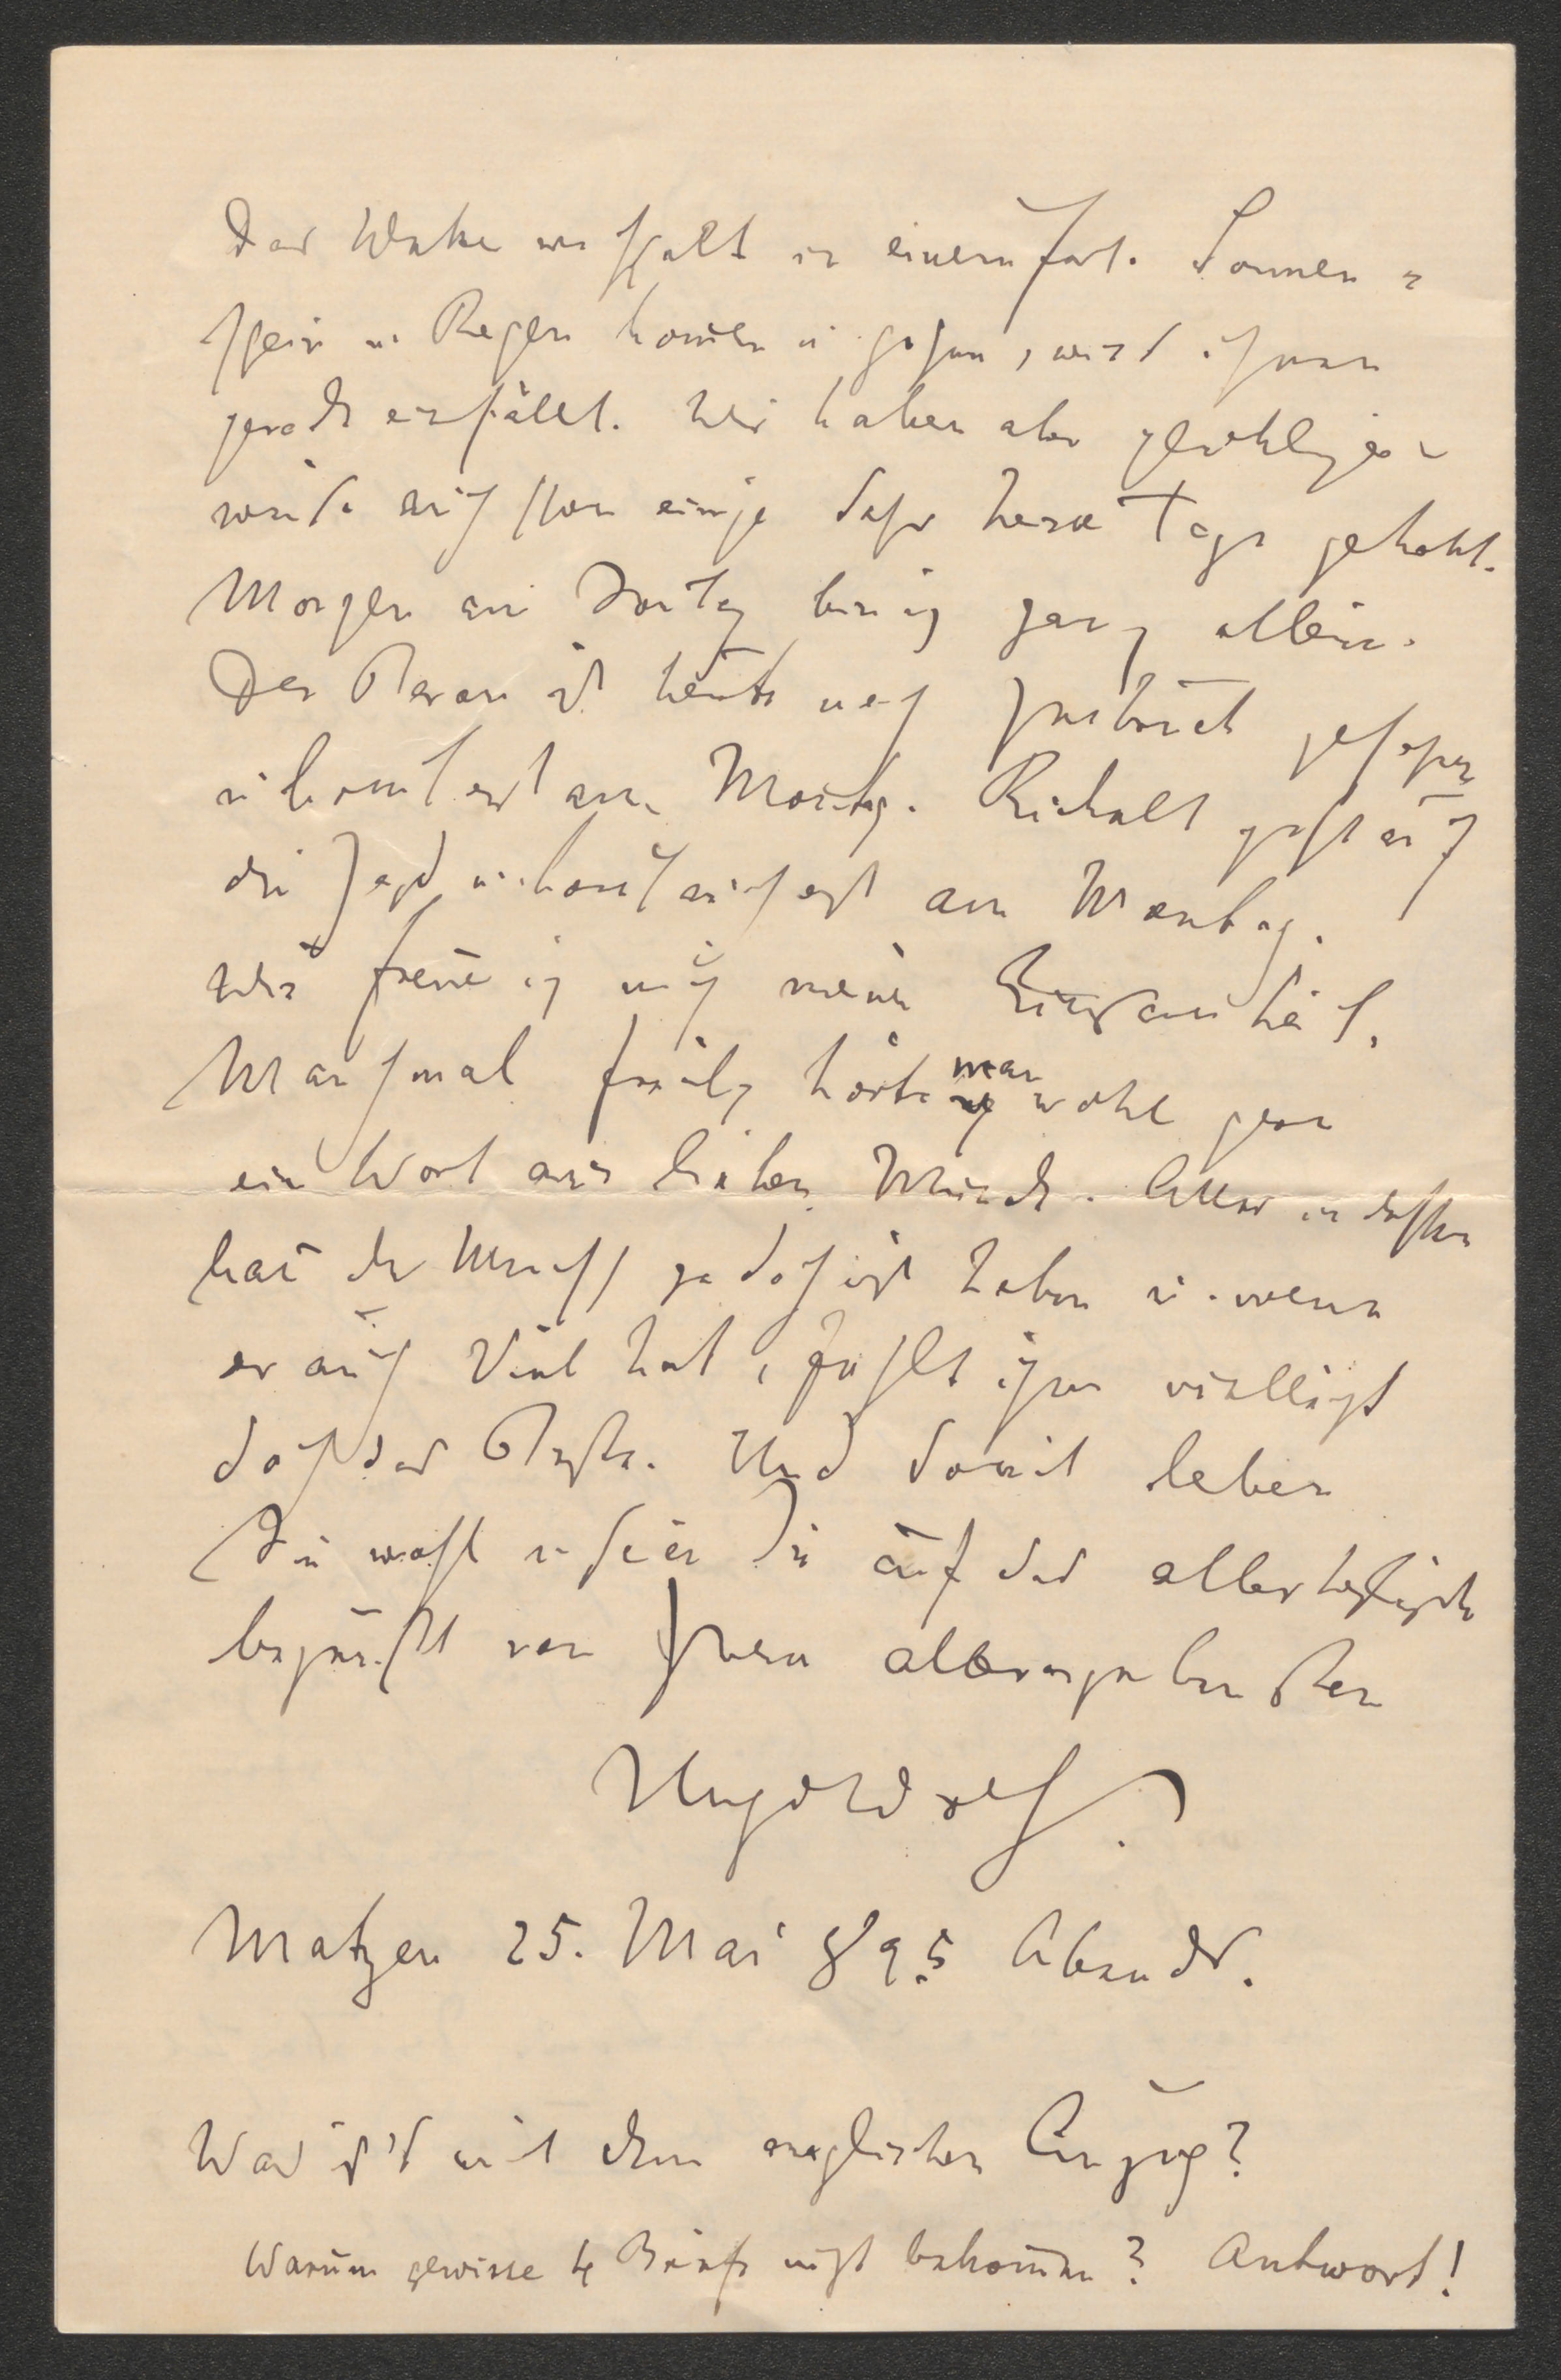 Das Wetter wechselt in einem fort. Sonnen-
schein u. Regen kommen u. gehen, wies ihnen
gerade einfällt. Wir haben aber
auch schon einige sehr heisse Tage gehabt.
Morgen am Sontag bin ich ganz allein.
Der Baron ist heute nach Insbruck gefahren
u. kommt erst am Montag. Rickelt geht auf
die Jagd u. kommt auch erst am Montag.
Wie freue ich mich meiner Einsamkeit.
Manchmal freilich hörte man wohl gern
ein Wort aus lieben Munde. Alles in dessen
kañ der Mensch ja doch nicht haben u. wenn
er auch Viel hat, fehlt ihm vielleicht
doch das Beste. Und somit leben
Sie wohl u. seien Sie auf das allerherzlichste
begrüsst von Ihrem allerergebensten
Hugo Wolf.
Matzen 25. Mai 895 Abends.
Was ist's mit dem englischen Anzug?
Warum gewisse 4 Briefe nicht bekom̄en? Antwort!